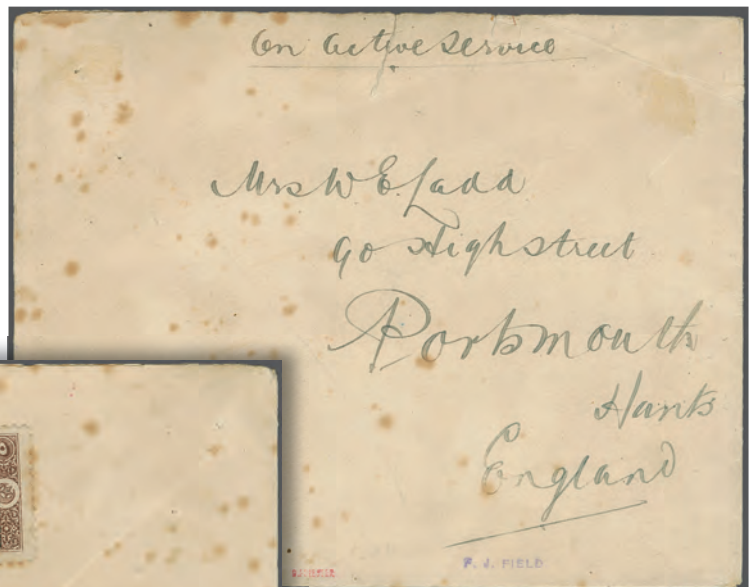 On Active Service
Mrs W E Ladd
90 High Street
Portsmouth
Hants
England
F. J. FIELD